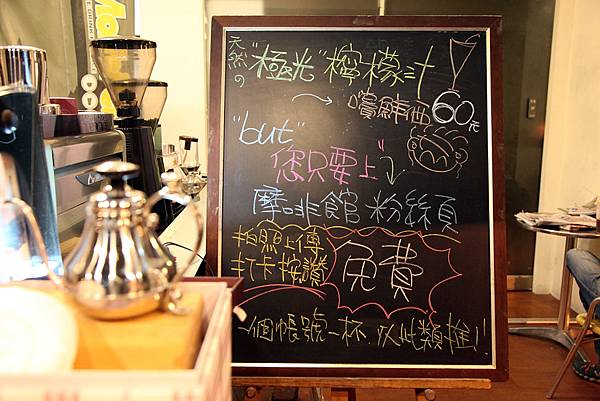 天然の"極光"檸檬汁
→嚐鮮価60元
"but"
您只要上
摩啡館 粉絲頁
拍照上傳
打卡按讚
免費
一個帳號一杯.以此類推!!